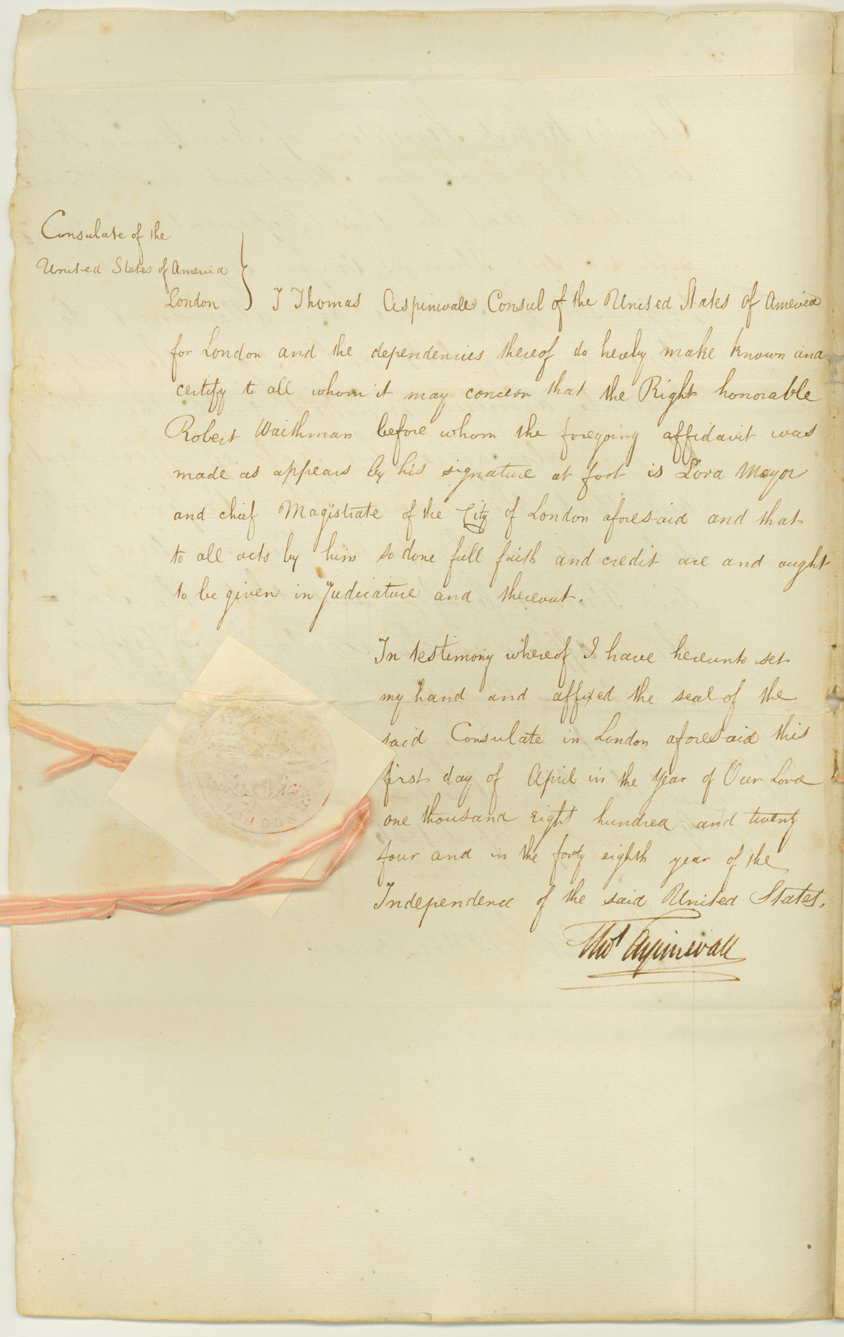 Consulate of the
United States of America
London } I Thomas Aspinwall Consul of the United States of America
for London and the dependencies thereof do hereby make known and
certify to all whom it may concern that the Right honorable
Robert Waithman before whom the foregoing affidavit was
made as appears by his signature at foot is Lord Mayor
and chief Magistrate of the City of London aforesaid and that
to all acts by him so done full faith and credit are and ought
to be given in Judicature and thereout.
In testimony whereof I have hereunto set
my hand and affixed the seal of the
said Consulate in London aforesaid this
first day of April in the Year of Our Lord
one thousand eight hundred and twenty
four and in the forty eighth year of the
Independence of the said United States.
Thos Aspinwall